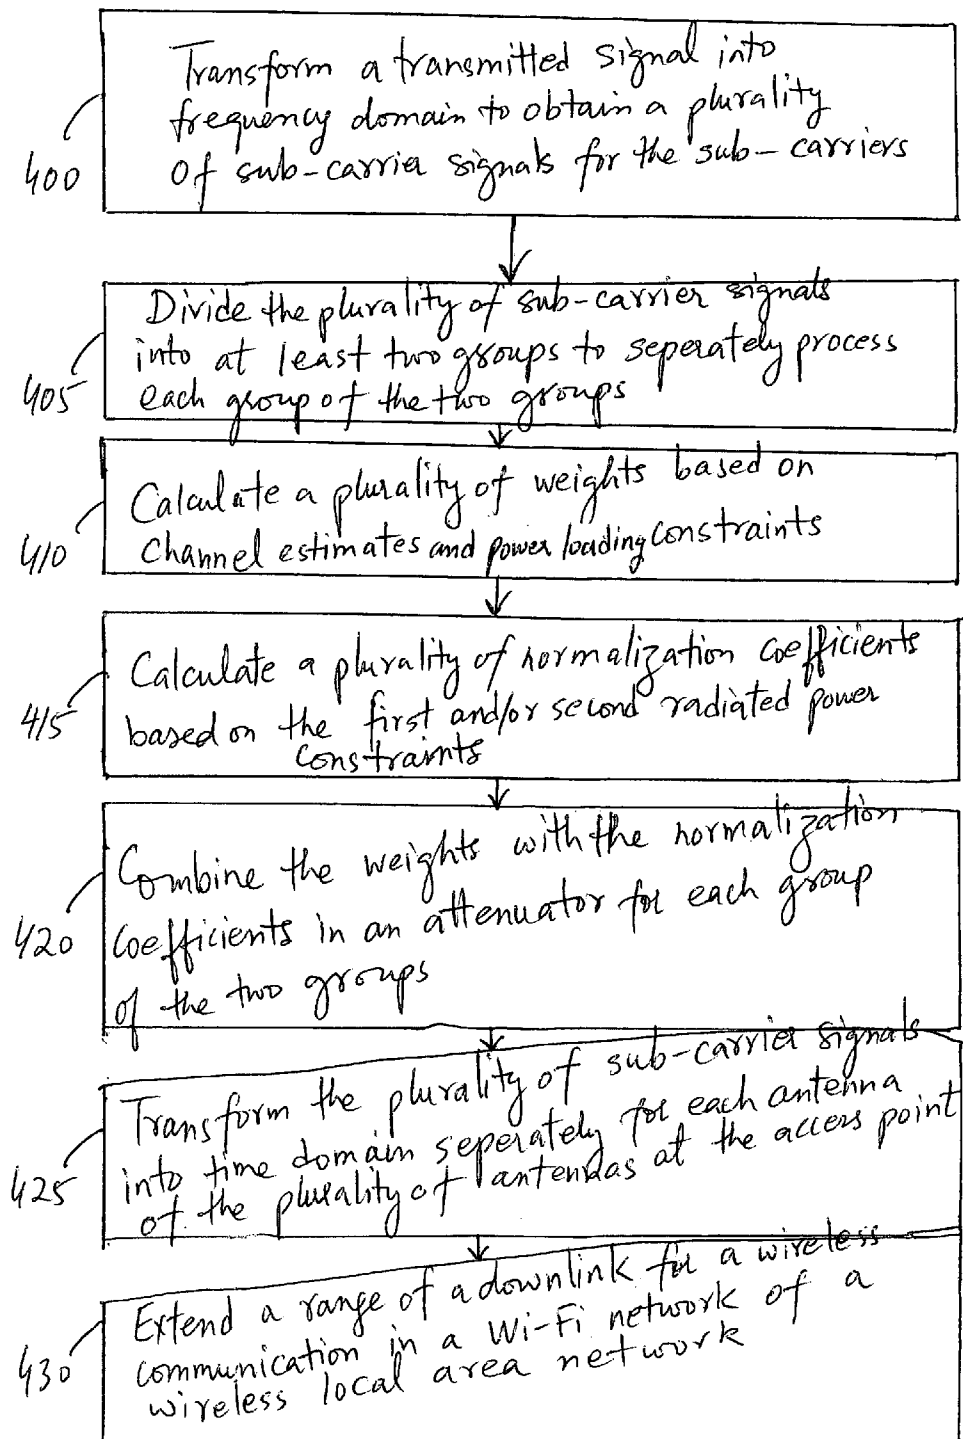 Transform a transmitted signal into
frequency domain to obtain a plurality
of sub-carrier signals for the sub-carriers
400
Divide the plurality of sub-carrier signals
into at least two groups to seperately process
each group of the two groups
405
Calculate a plurality of weights based on
Channel estimates and power loading constraints
410
Calculate a plurality of normalization coefficients
based on the first and/or second radiated power
constraints
415
Combine the weights with the normalization
coefficients in an attenuator for each group
of the two groups
420
Transform the plurality of sub-carrier signals
into time domain seperately for each antenna
of the plurality of antennas at the access point
425
Extend a range of a downlink for a wireless
communication in a Wi-Fi network of a
wireless local area network
430